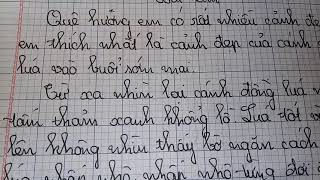 Quê hương em có rất nhiều cảnh đẹ
em thích nhất là cảnh đẹp của cánh
lúa vào buổi sớm mai.
Từ xa nhìn lại cánh đồng lúa
tấm thảm xanh khổng lồ. Lúa tốt
lên không nhìn thấy bờ ngăn cách
nhô nhấn nhô từng đợt